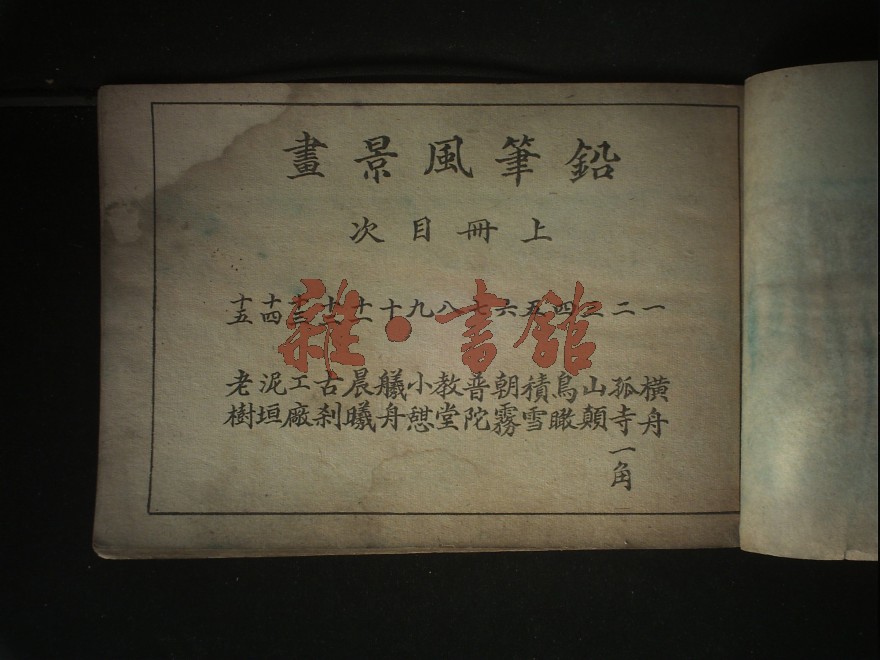 鉛筆風景畫
上冊目次
一 橫舟
二 孤寺一角
三 山顛
四 鳥瞰
五 積雪
六 朝霧
七 普陀
八 教堂
九 小憇
十 艤舟
十一 晨曦
十二 古刹
十三 工廠
十四 泥垣
十五 老樹
雜·書館